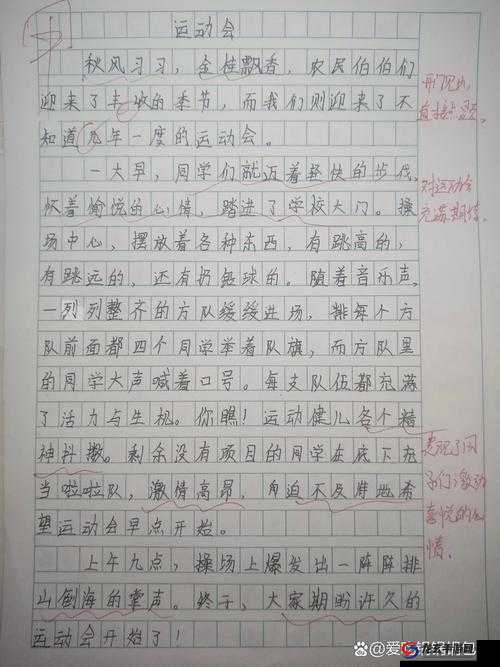 运动会
秋风习习，金桂飘香，农民伯伯们
迎来了丰收的季节，而我们则迎来了不
知道几年一度的运动会。
一大早，同学们就迈着轻快的步伐，
怀着愉悦的心情，踏进了学校大门。操
场中心，摆放着各种东西，有跳高的，
有跳远的，还有扔铅球的。随着音乐声，
一列列整齐的方队缓缓进场，排每个方
队前面都四个同学举着队旗，而方队里
的同学大声喊着口号。每支队伍都充满
了活力与生机。你瞧！运动健儿各个精
神抖擞。剩余没有项目的同学在底下充
当啦啦队，激情高昂，自迫不及待地希
望运动会早点开始。
上午九点，操场上爆发出一阵阵排
山倒海的掌声。终于，大家期盼许久的
运动会开始了！
开门见山，
直接点题。
对运动会
充满期待。
表现了同
学们激动
喜悦的心
情。